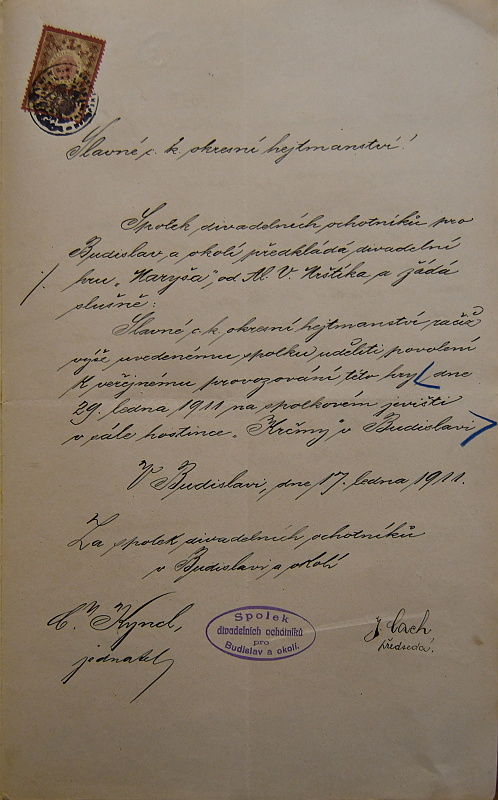 Slavné c. k. okresní hejtmanství!
Spolek divadelních ochotníků pro
Budislav a okolí předkládá divadelní
hru „Maryša“, od Al. V. Mrštíka a žádá
slušně:
Slavné c. k. okresní hejtmanství račiž
výše uvedenému spolku uděliti povolení
k veřejnému provozování této hry dne
29. ledna 1911 na spolkovém jevišti
v sále hostince „Krčmy“ v Budislavi
V Budislavi, dne 17. ledna 1911.
Za spolek divadelních ochotníků
v Budislavi a okolí
Kyncl,
jednatel
Spolek
divadelních ochotníků
pro
Budislav a okolí.
J. Cach
předseda.